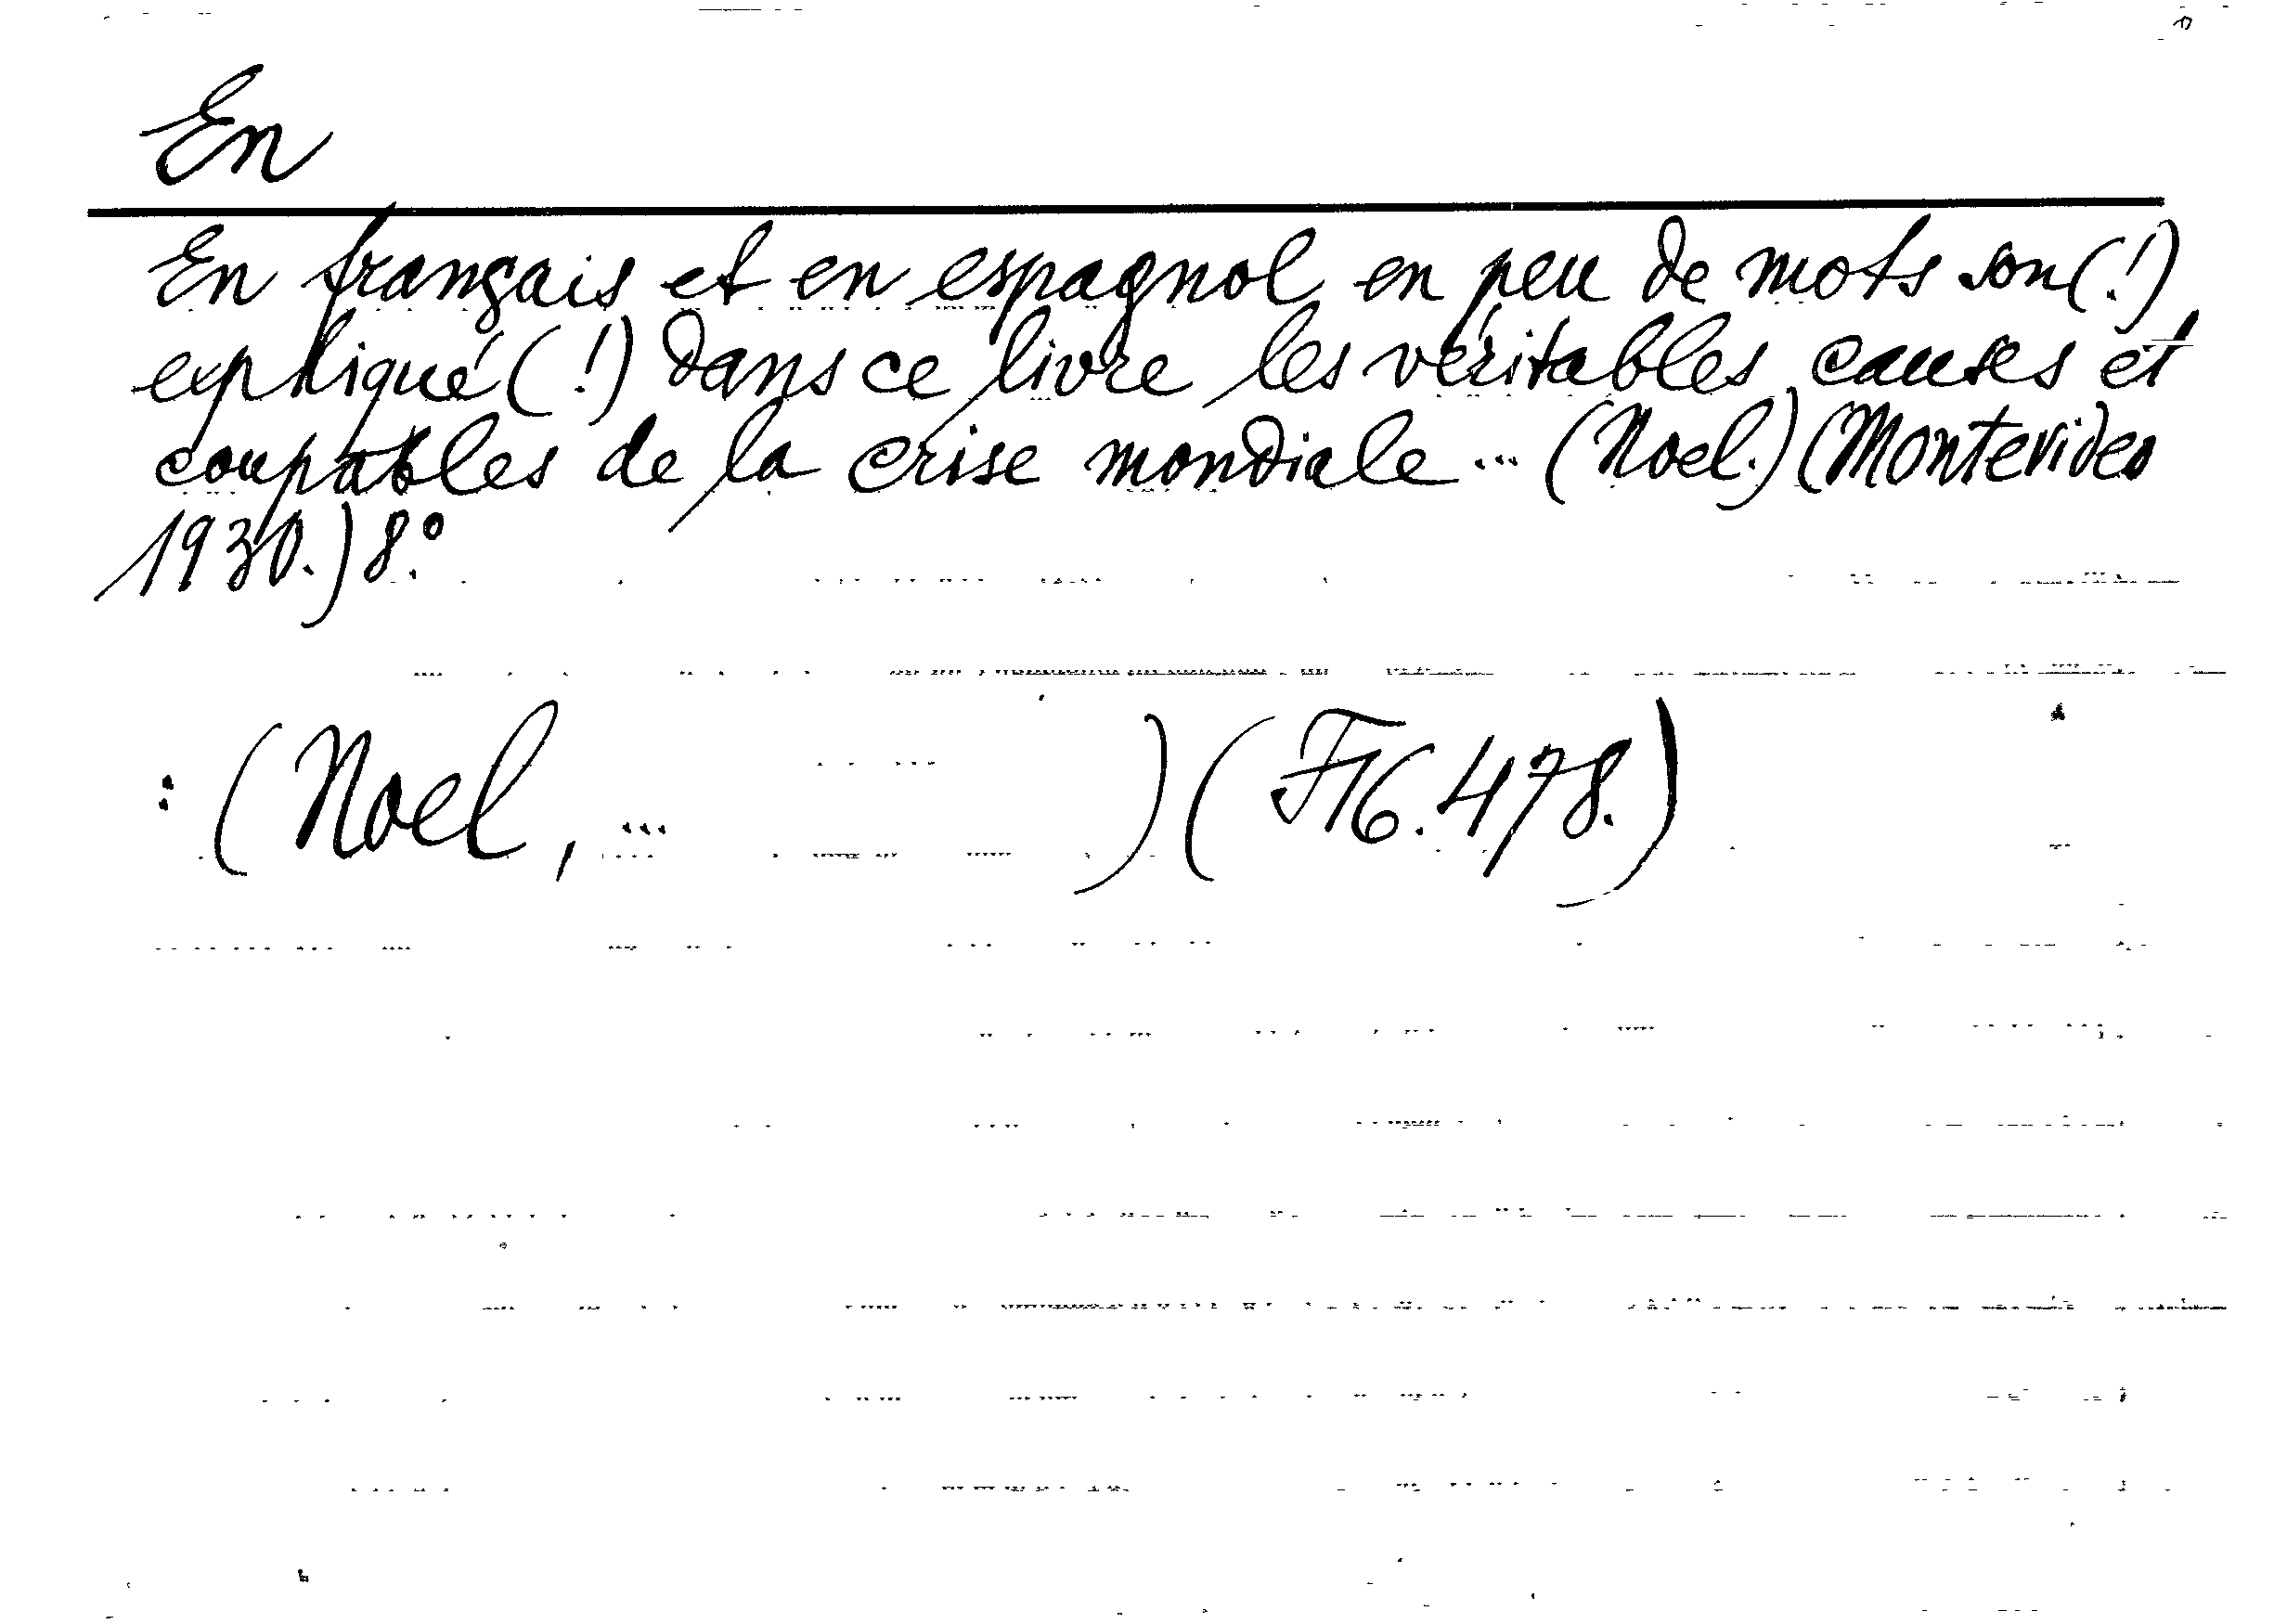 En
En français et en espagnol en peu de mots son(!)
expliqué(!) dans ce livre les véritables causes et
coupables de la crise mondiale ... (Noel.) (Montevideo
1930.) 8.°
: (Noel, ... ) (F16.478.)